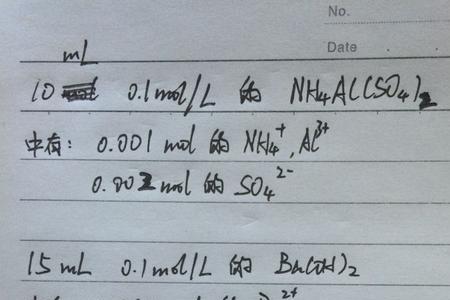 No.
Date
mL
10 0.1mol/L 的 NH4Al(SO4)2
中有: 0.001 mol 的 NH4+, Al3+
0.002 mol 的 SO4 2-
15 mL 0.1mol/L 的 Ba(OH)2
2+